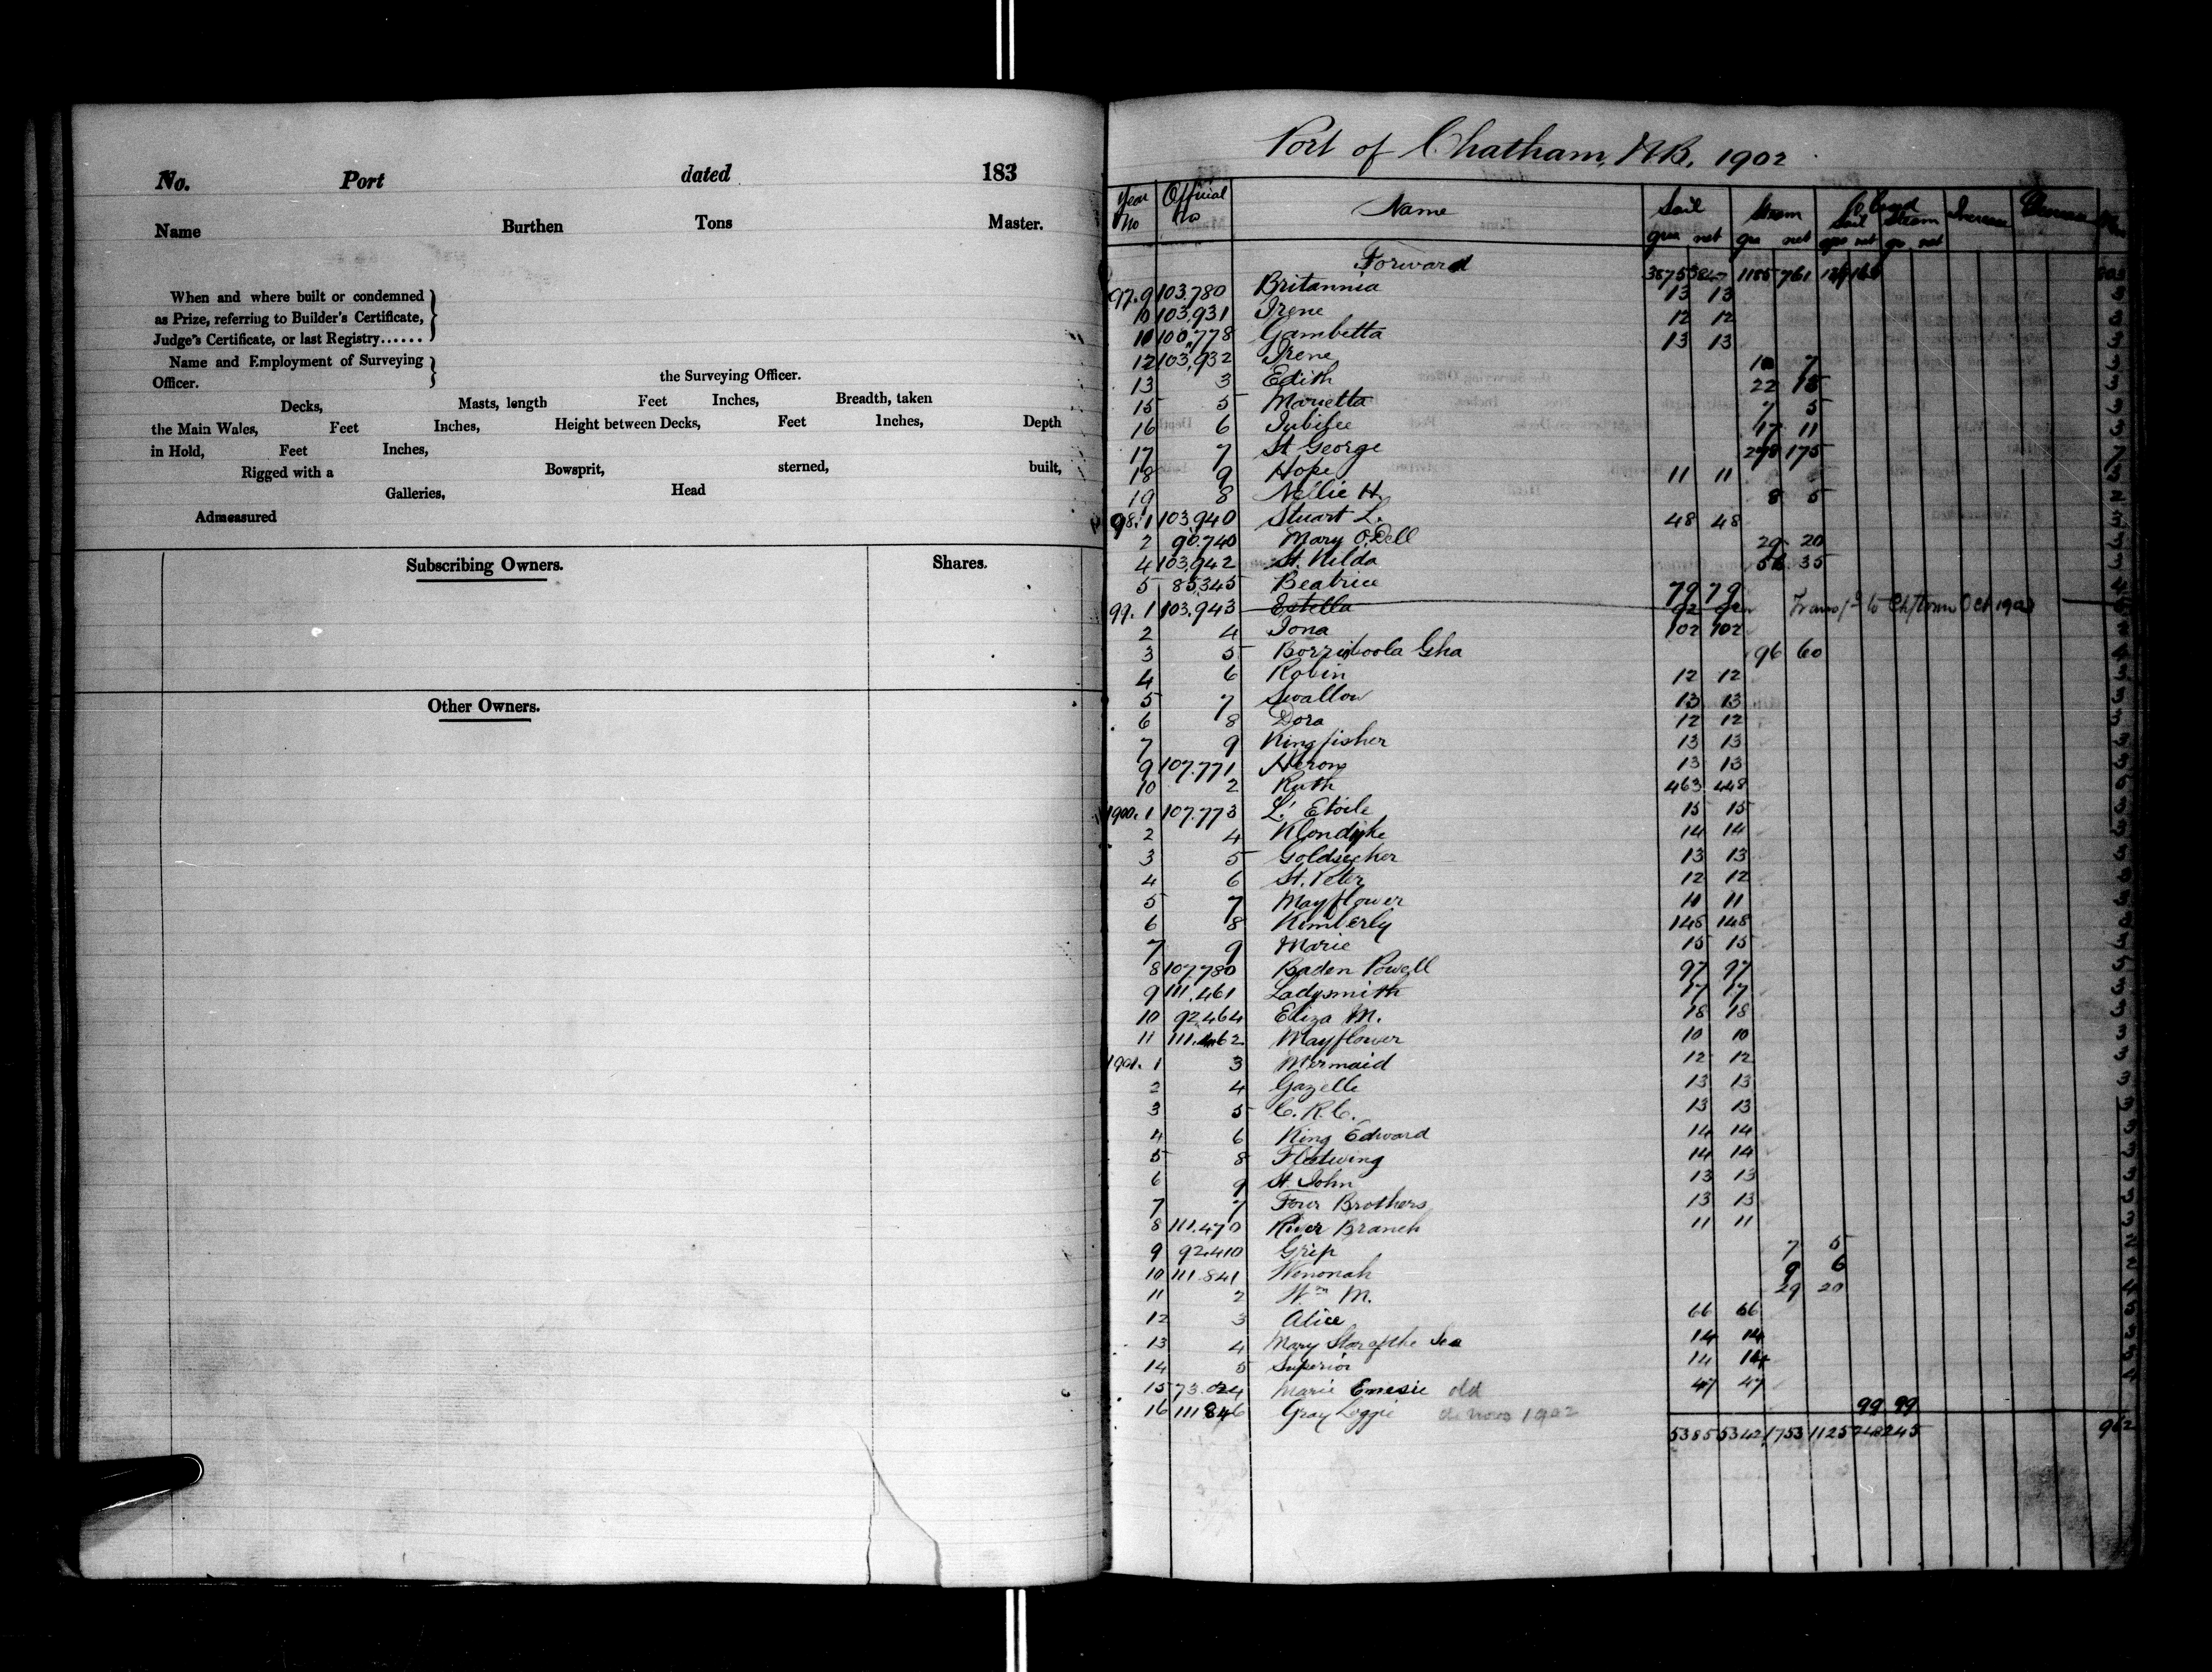 No. Port dated 183
Name Burthen Tons Master.
When and where built or condemned
as Prize, referring to Builder's Certificate,
Judge's Certificate, or last Registry......
Name and Employment of Surveying
Officer. the Surveying Officer.
Decks, Masts, length Feet Inches, Breadth, taken
the Main Wales, Feet Inches, Height between Decks, Feet Inches, Depth
in Hold, Feet Inches,
Rigged with a Bowsprit, sterned, built,
Galleries, Head
Admeasured
Subscribing Owners. Shares.
Other Owners.
Port of Chatham, N.B. 1902
Year No Official no Name Sail Steam Closed Sail Steam Increase
gro net gro net gro net gro net
Forward 3875 3847 1185 761
97. 9 103,780 Britannia 13 13
10 103,931 Irene 12 12
100,778 Gambetta 13 13
12 103,932 Irene 7
13 3 Edith 22 15
15 5 Marietta 7 5
16 6 Jubilee 17 11
17 7 St George 175
18 9 Hope 11 11
19 8 Nellie H. 8 5
98. 1 103,940 Stuart L. 48 48
2 90,740 Mary O.Dell 29 20
4 103,942 St. Kilda 35
5 85345 Beatrice 79 79
99. 1 103,943 Estella 92 92 Transfd to Ch/town Oct 1902
2 4 Iona 102 102
3 5 Borrioboola Gha 96 60
4 6 Robin 12 12
5 7 Swallow 13 13
6 8 Dora 12 12
7 9 Kingfisher 13 13
9 107.771 Heron 13 13
10 2 Ruth 463 448
1900. 1 107.773 L'Etoile 15 15
2 4 Klondyke 14 14
3 5 Goldseeker 13 13
4 6 St. Peter 12 12
5 7 Mayflower 11 11
6 8 Kimberly 148 148
7 9 Marie 15 15
8 107,780 Baden Powell 97 97
9 111.461 Ladysmith 17 17
10 92464 Eliza M. 18 18
11 111.462 Mayflower 10 10
1901. 1 3 Mermaid 12 12
2 4 Gazelle 13 13
3 5 C.R.C. 13 13
4 6 King Edward 14 14
5 8 Fleetwing 14 14
6 9 St. John 13 13
7 7 Four Brothers 13 13
8 111.470 River Branch 11 11
9 92.410 Grip 7 5
10 111.841 Wenonah 9 6
11 2 Wm M. 29 20
12 3 Alice 66 66
13 4 Mary Star of the Sea 14 14
14 5 Superior 14 14
15 73.024 Marie Emesie old 47 47
16 111846 Gray Loggie de novo 1902 99 99
5385 5342 1753 1125 248 245 962